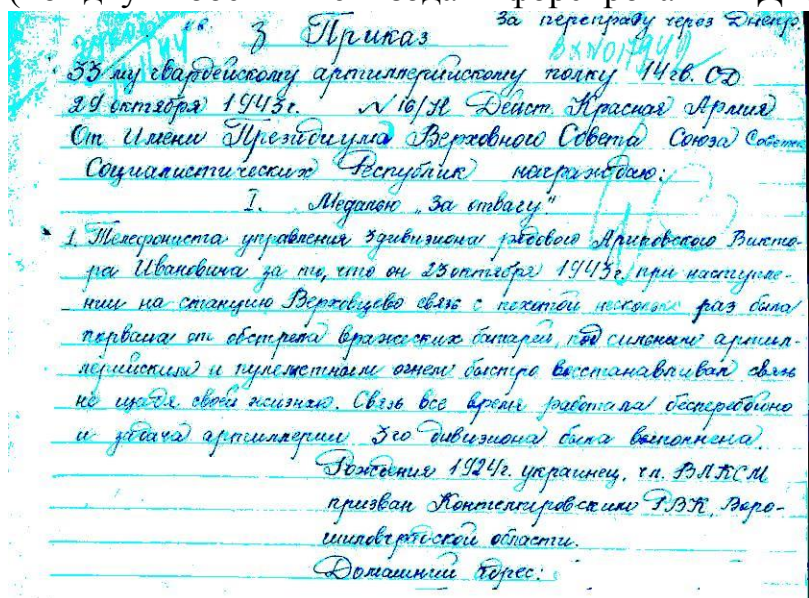 За переправу через Днепр
Приказ
Вх№01944
33 му гвардейскому артиллерийскому полку 14 гв. СД
29 октября 1943г. №16/Н Действ. Красная Армия
От имени Президиума Верховного Совета Союза Советск
Социалистических Республик награждаю:
I. Медалью „За отвагу"
1. Телефониста управления 3 дивизиона рядового Викто-
ра Ивановича за то, что он 23 октября 1943г. при наступле-
нии на станцию Верховцево связь с пехотой несколько раз была
порвана от обстрела вражеских батарей, под сильным артил-
лерийским и пулеметным огнем быстро восстанавливал связь
не щадя своей жизнью. Связь все время работала бесперебойно
и задача артиллерии 3го дивизиона была выполнена.
Рождения 1924г. украинец, чл. ВЛКСМ
призван РВК, Воро-
шиловградской области.
Домашний адрес: